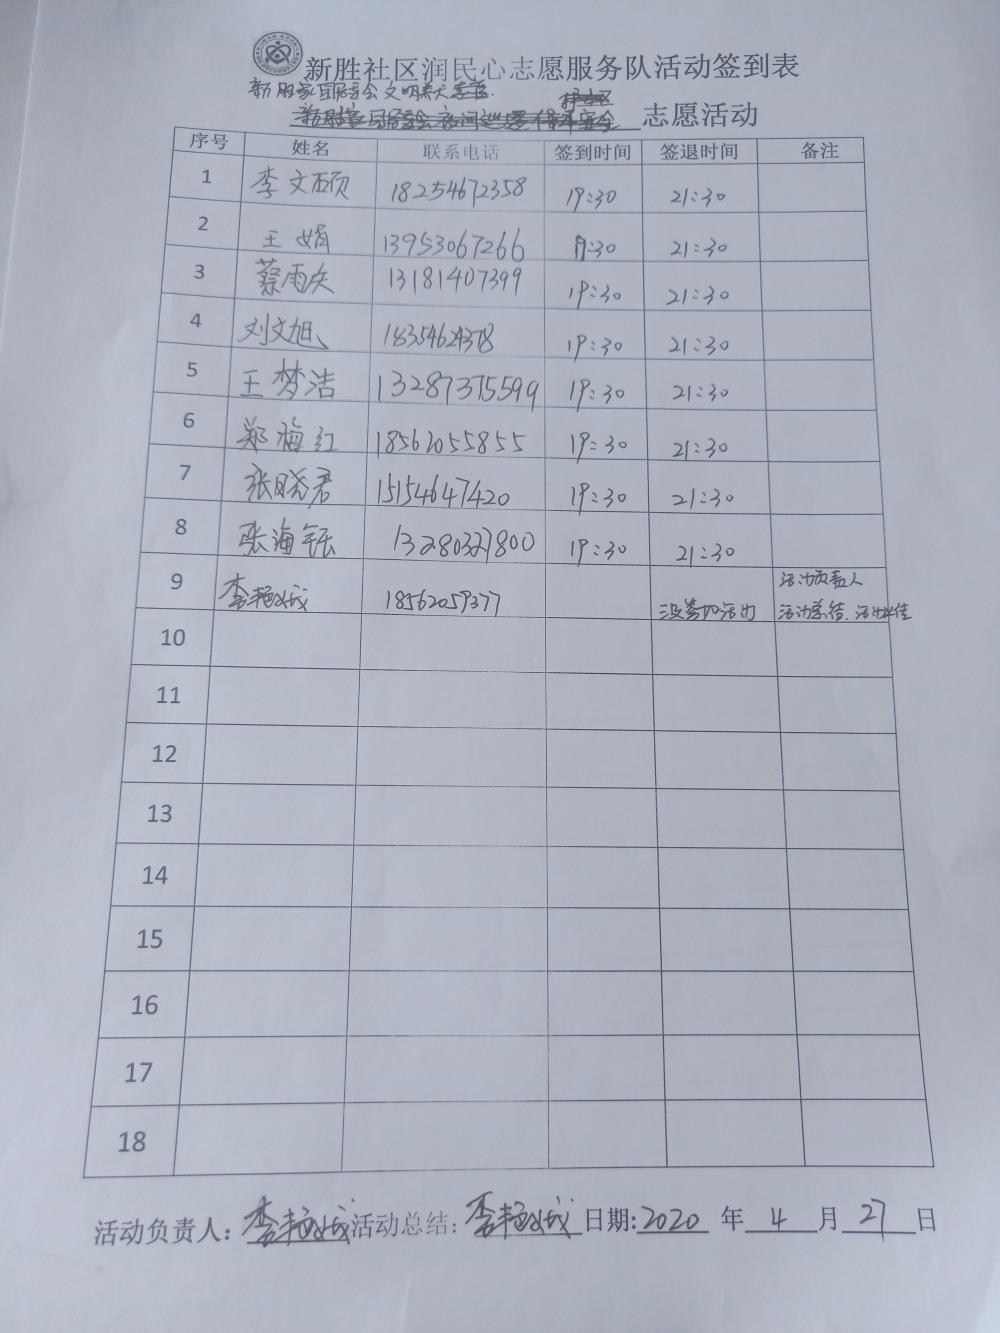 新胜社区润民心志愿服务队活动签到表
新胜家园居委会文明养犬
志愿活动
序号 姓名 联系电话 签到时间 签退时间 备注
1 李文硕 18254672358 19:30 21:30
2 王娟 13953067266 19:30 21:30
3 蔡雨矢 13181407399 19:30 21:30
4 刘文旭 18354624378 19:30 21:30
5 王梦洁 13287375599 19:30 21:30
6 郑梅红 18562055855 19:30 21:30
7 张晓君 15154647420 19:30 21:30
8 张海钰 13280327800 19:30 21:30
9 李艳城 18562059377 没参加活动 活动负责人
活动总结、活动
10
11
12
13
14
15
16
17
18
活动负责人: 李艳城 活动总结: 李艳城 日期: 2020 年 4 月 27 日